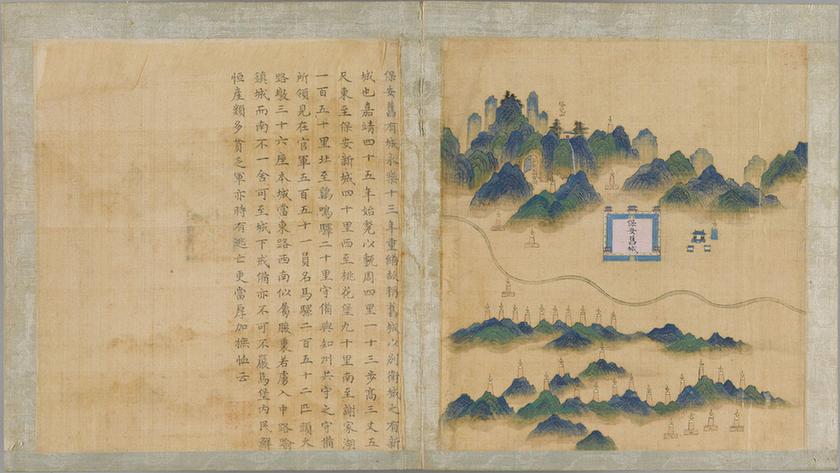 保安舊有城永樂十三年重繕故稱舊城以別衛城之有新
城也嘉靖四十五年始甃以甎周四里一十三步高三丈五
尺東至保安新城四十里西至桃花堡九十里南至謝家湖
一百五十里北至雞鳴驛二十里守備與知州共守之守備
所領見在官軍五百五十一員名馬騾二百五十二匹頭火
路墩三十六座本城當東路西南似屬腹裏若虜入中路踰
鎮城而南不一舍可至城下戒備亦不可不嚴馬堡內民鮮
恒産類多貧乏軍亦時有逃亡更當厚加撫恤云
保安舊城